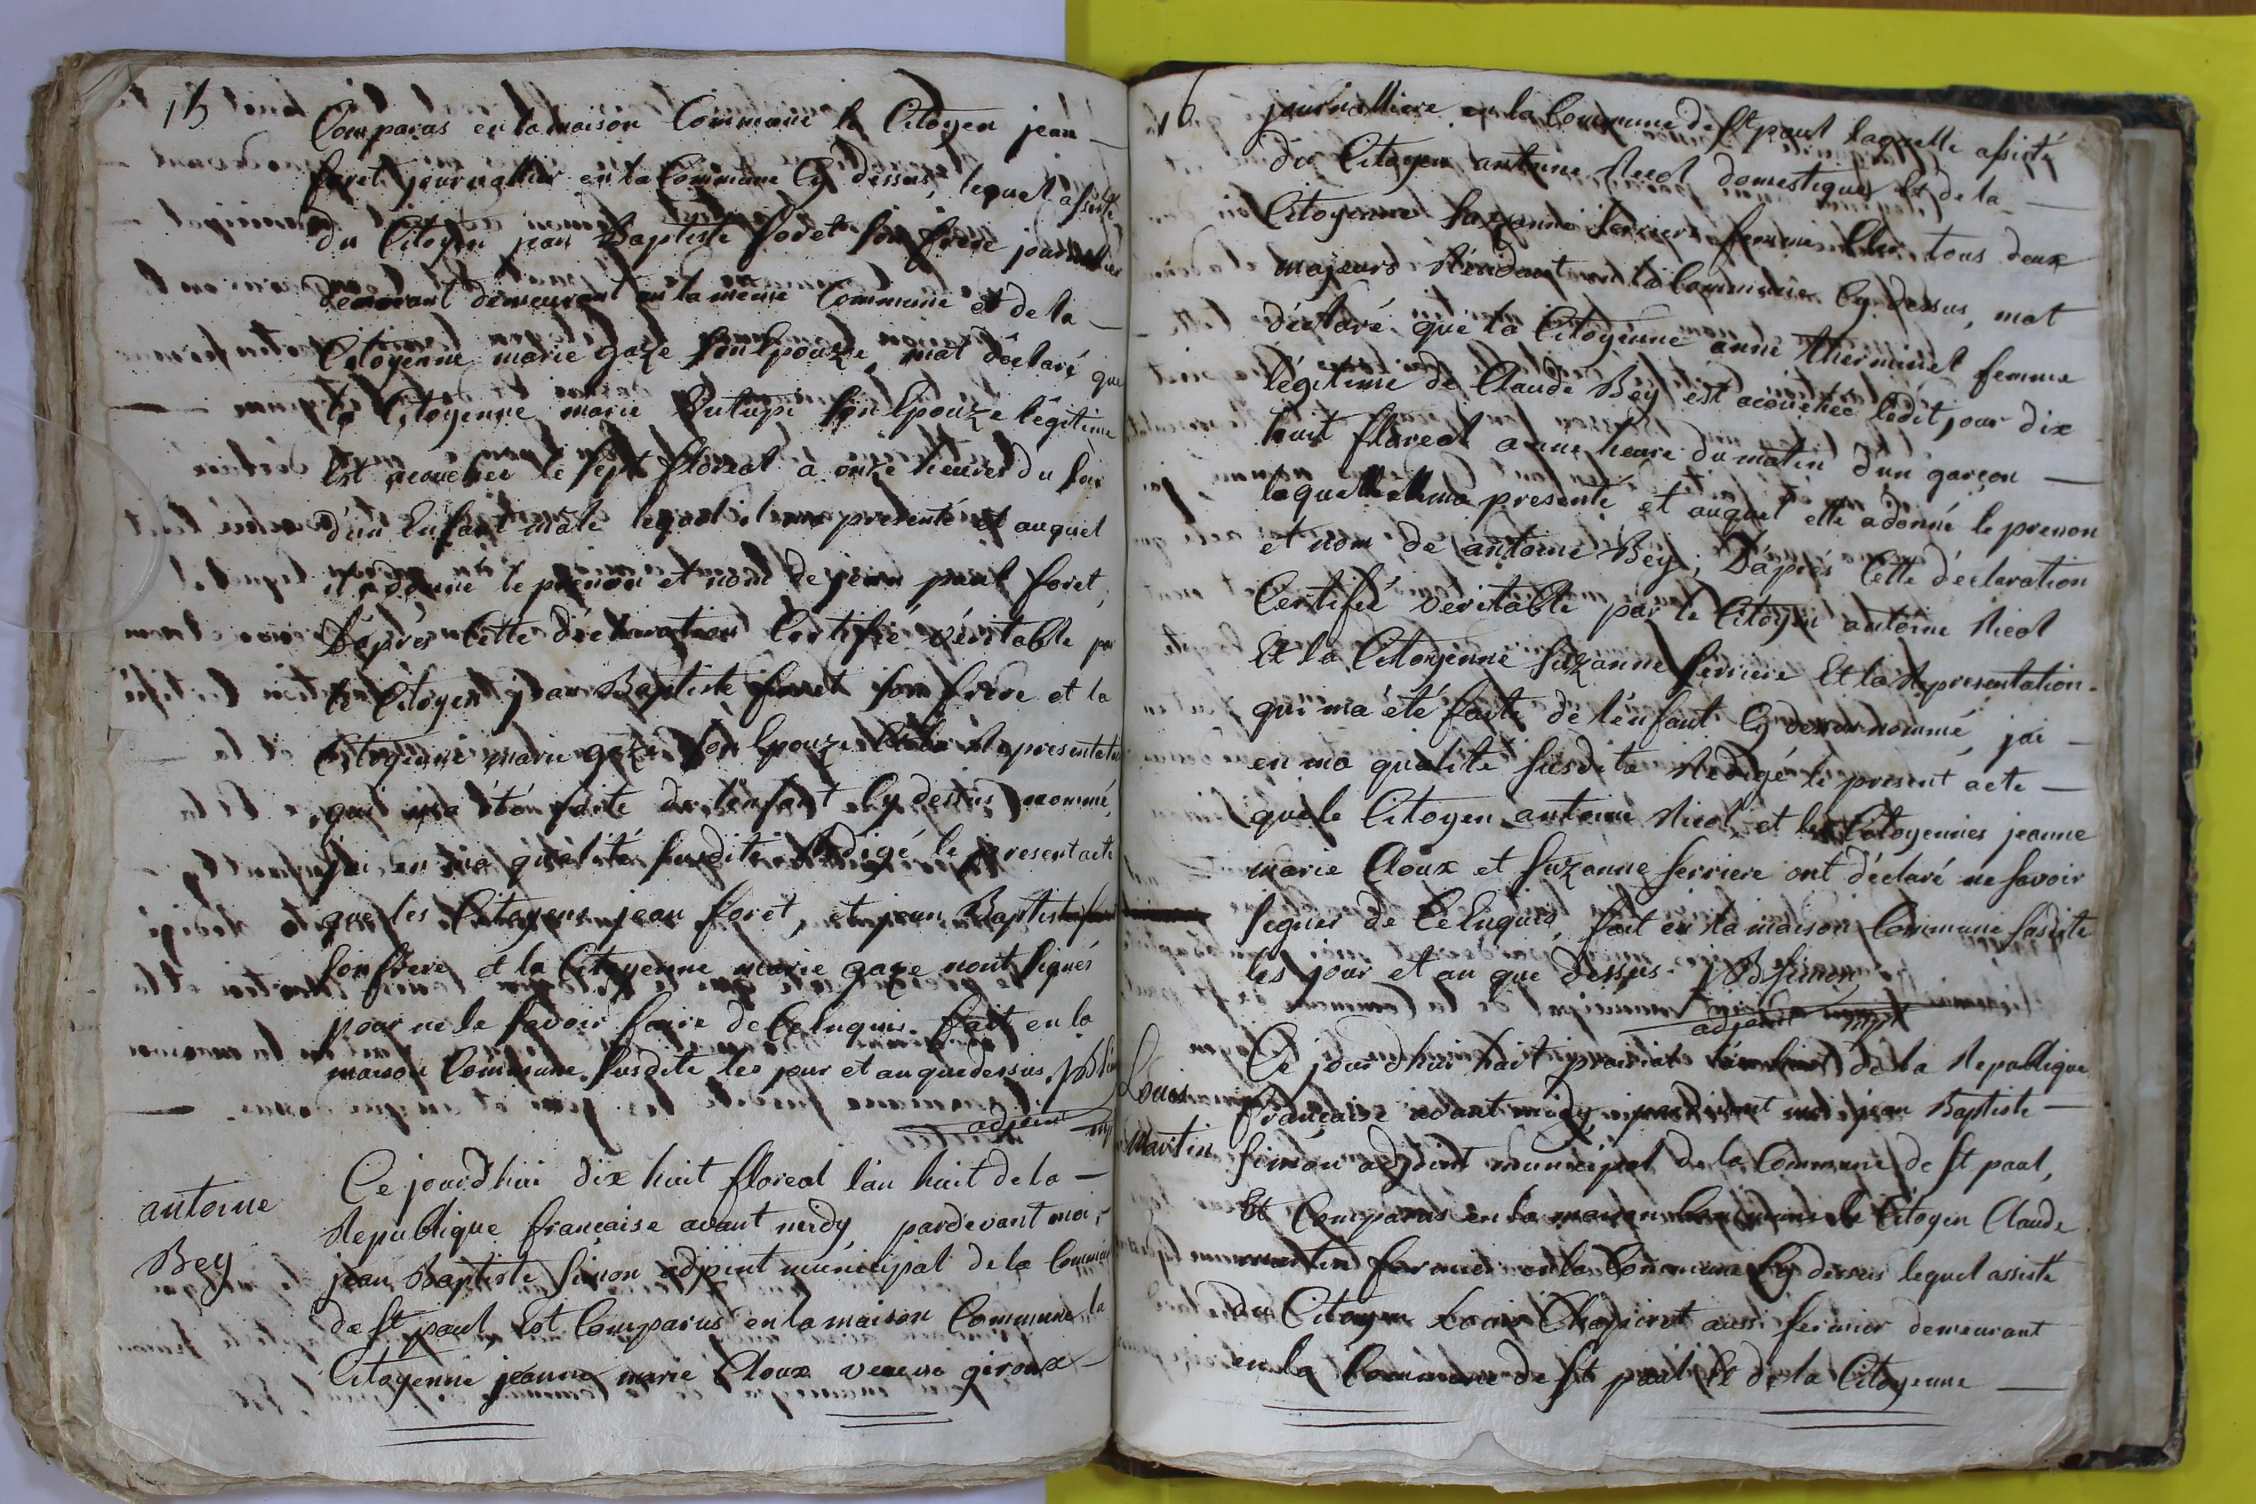 15
Comparus en la maison Commune le Citoyen jean
foret journallier en la Commune Cy dessus, lequel assisté
du Citoyen jean Baptiste foret son frere journallier
demeurant en la meme Commune et de la
Citoyenne marie gaze son Epouze, mat déclaré que
la Citoyenne marie son Epouze légitime
Est acouchée le sept floreal a onze heures du soir
d'un Enfant mâle lequel il ma presenté et auquel
il a donné le prenon et nom de jean paul foret,
D'après Cette déclaration Certifié véritable par
le Citoyen jean Baptiste foret son frere et la
Citoyenne marie gaze son Epouze Et la Representation
qui ma été faite de l'enfant Cy dessus nommé,
jai en ma qualité susdite Redigé le present acte
que les Citoyens jean foret, et jean Baptiste foret
son frere et la Citoyenne marie gaze nont signés
pour ne le savoir faire de Ce Enquis. fait en la
maison Commune susdite les jour et an que dessus. JBSimon
adjoint mpl
antoine
Bey
Ce jourd'hui dix huit floreal l'an huit de la
Republique française avant midy, pardevant moi
jean Baptiste Simon adjoint municipal de la Commune
de St paul, Est Comparus en la maison Commune la
Citoyenne jeanne marie Cloux veuve giroux
16
journalliere en la Commune de St paul laquelle assisté
du Citoyen antoine Nicol domestique Et de la
Citoyenne Suzanne ferriere femme tous deux
majeurs Résidant en la Commune Cy dessus, mat
déclaré que la Citoyenne anne therminet femme
légitime de Claude Bey est acouchée ledit jour dix
huit floreal a une heure du matin d'un garçon
laquelle elle ma presenté et auquel elle a donné le prenon
et nom de antoine Bey; D'après Cette déclaration
Certifié veritable par le Citoyen antoine Nicol
Et la Citoyenne Suzanne ferriere Et la Representation
qui ma été faite de l'enfant Cy dessus nommé, jai
en ma qualité susdite Redigé le present acte
que le Citoyen antoine Nicol, et les Citoyennes jeanne
marie Cloux et Suzanne ferriere ont déclaré ne savoir
signer de Ce Enquis, fait en la maison Commune susdite
les jour et an que dessus. JBSimon
adjoint mpl
Louis
Martin
Ce jourd'hui huit prairial l'an huit de la Republique
française avant midy, pardevant moi jean Baptiste
Simon adjoint municipal de la Commune de St paul,
Est Comparus en la maison Commune le Citoyen Claude
martin fermier en la Commune Cy dessus lequel assisté
du Citoyen Louis aussi fermier demeurant
en la Commune de St paul Et de la Citoyenne